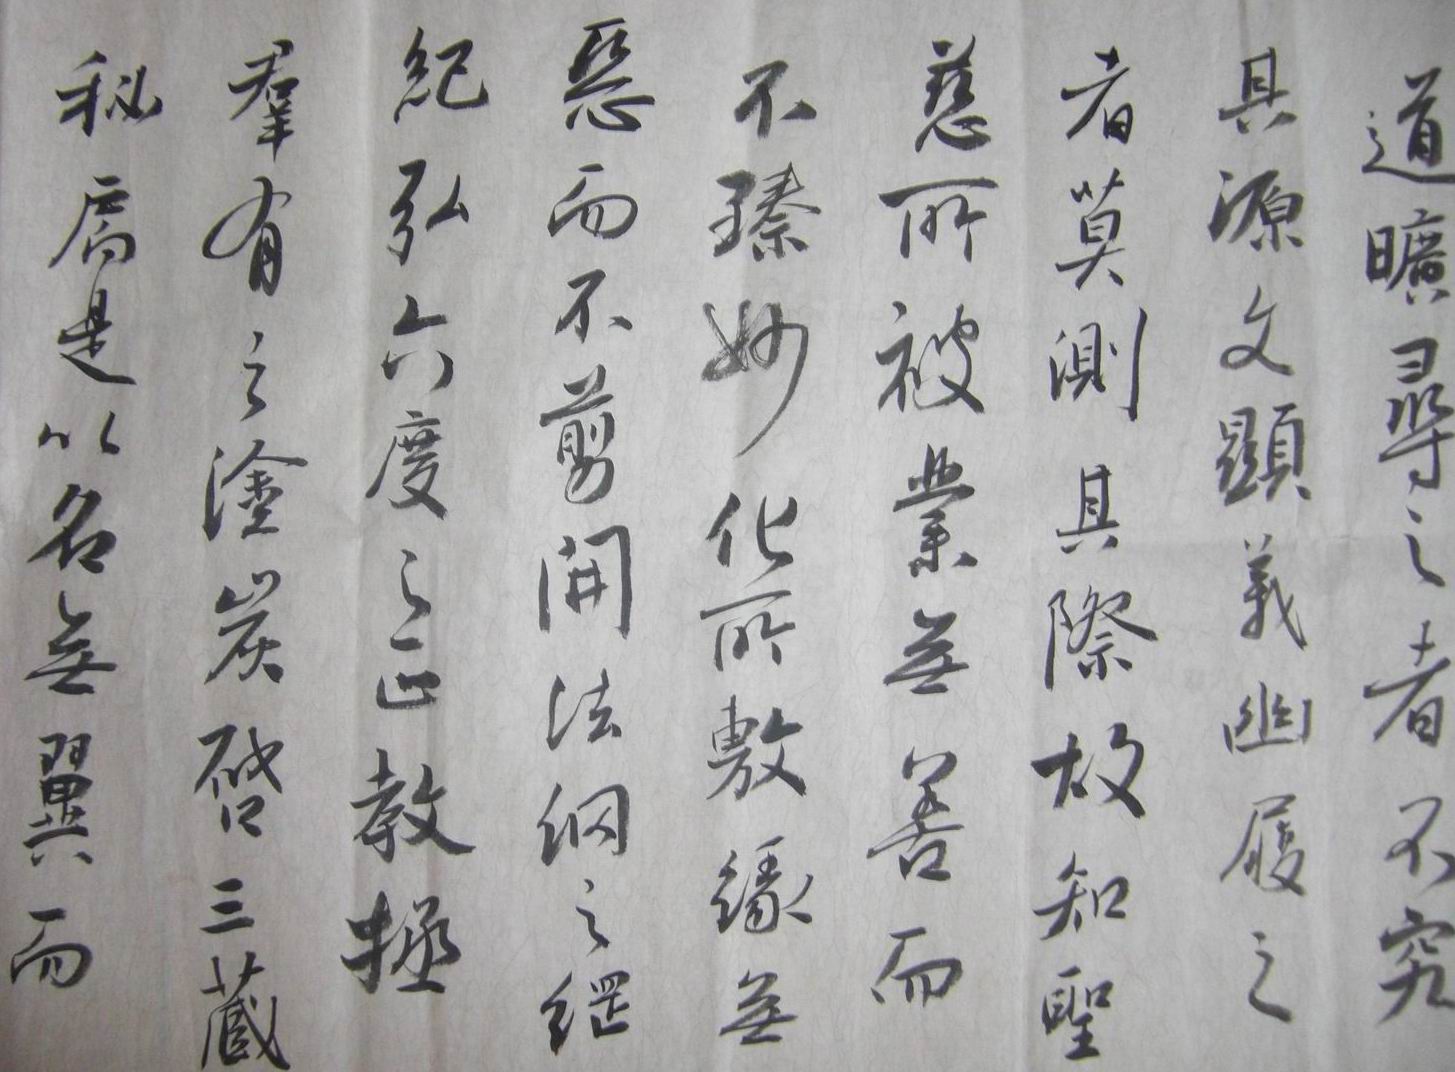 道曠尋之者不究
具源文顯義幽履之
者莫測其際故知聖
慈所被業無善而
不臻妙化所敷緣無
惡而不剪開法網之綱
紀弘六度之正教拯
羣有之塗炭啓三藏
秘扃是以名無翼而